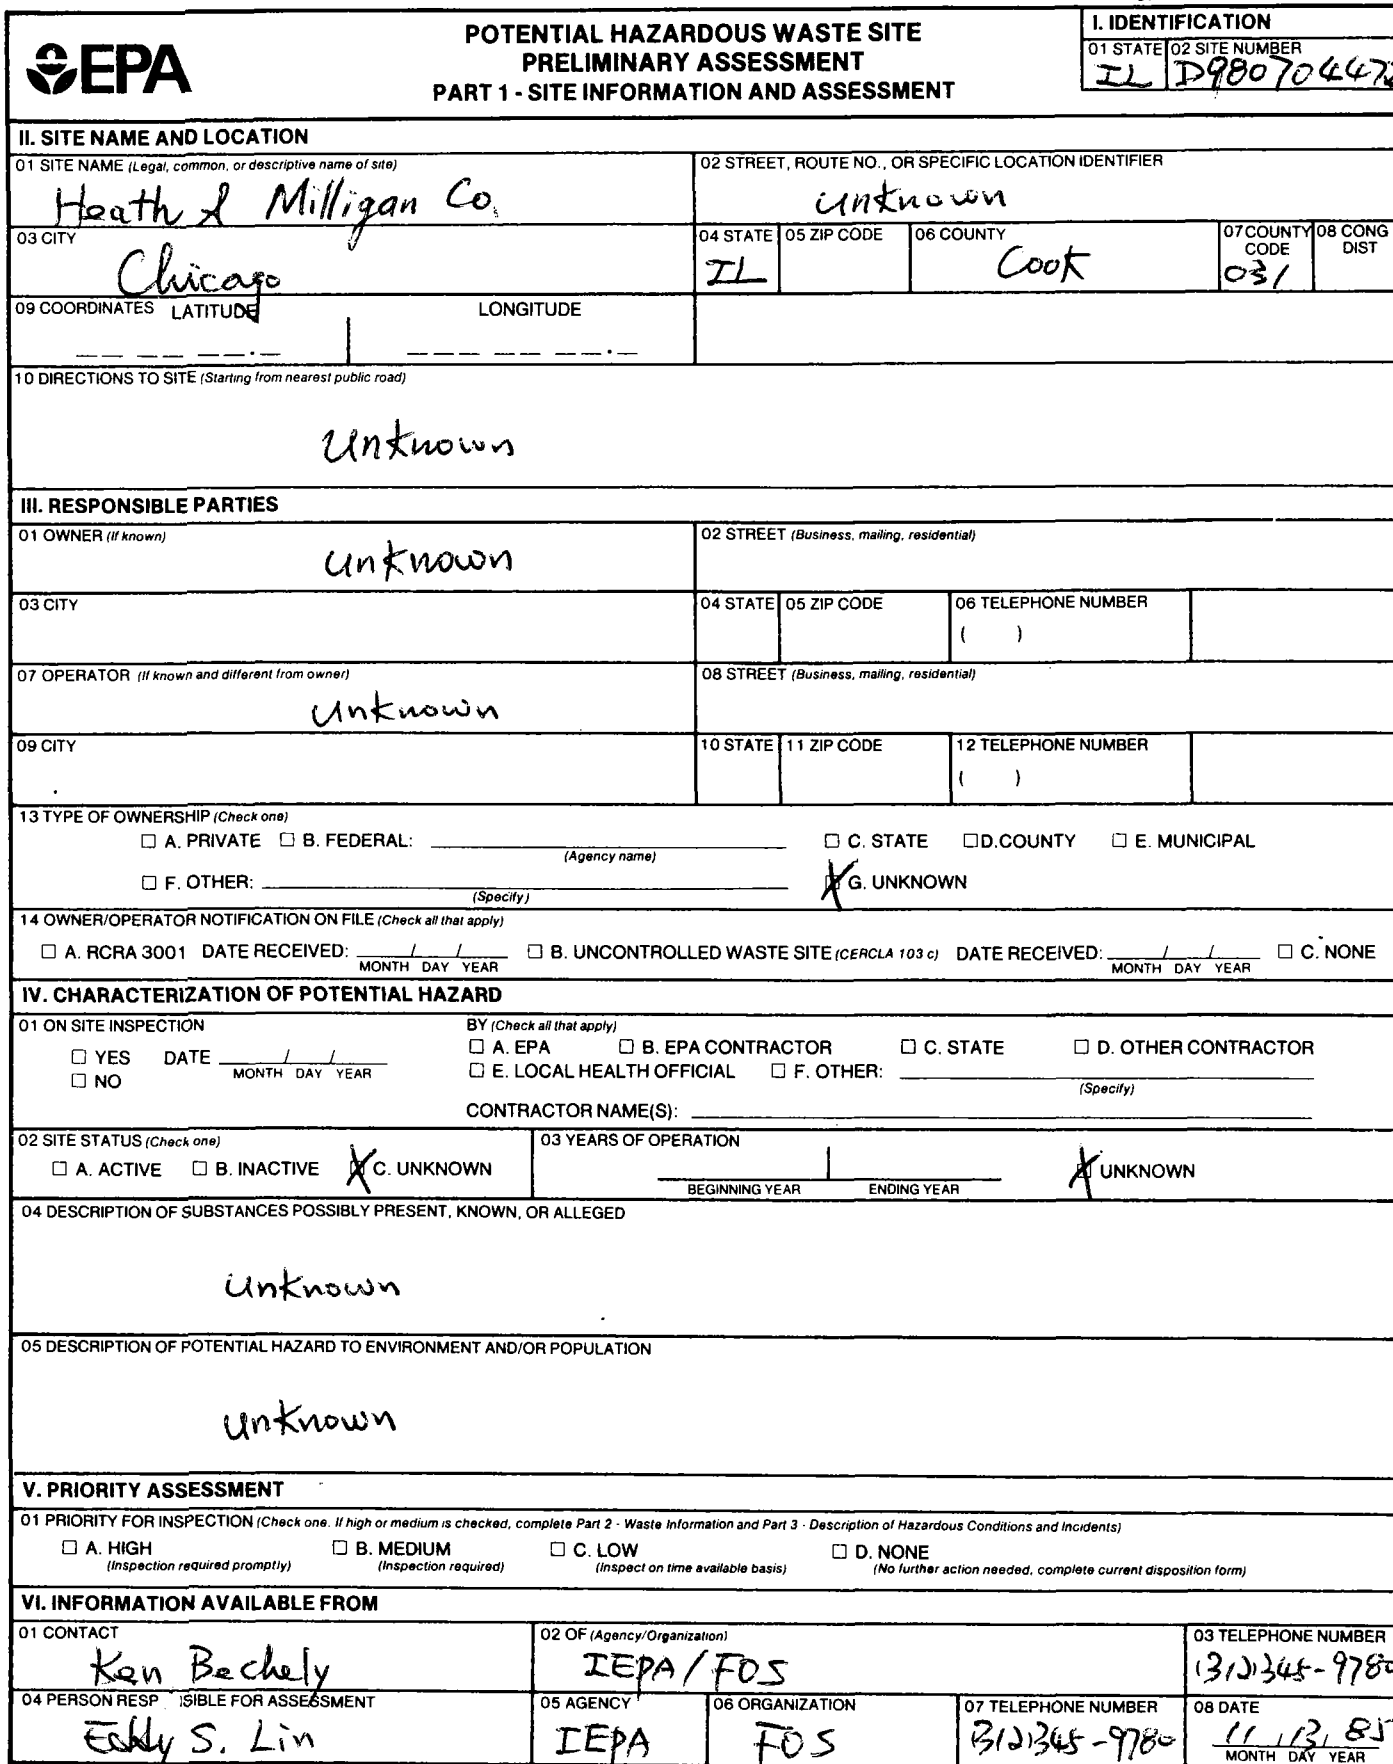 EPA
POTENTIAL HAZARDOUS WASTE SITE
PRELIMINARY ASSESSMENT
PART 1 - SITE INFORMATION AND ASSESSMENT
I. IDENTIFICATION
01 STATE 02 SITE NUMBER
IL D980704472
II. SITE NAME AND LOCATION
01 SITE NAME (Legal, common, or descriptive name of site)
Heath & Milligan Co.
02 STREET, ROUTE NO., OR SPECIFIC LOCATION IDENTIFIER
unknown
03 CITY
Chicago
04 STATE 05 ZIP CODE 06 COUNTY 07 COUNTY CODE 08 CONG DIST
IL Cook 031
09 COORDINATES LATITUDE LONGITUDE
10 DIRECTIONS TO SITE (Starting from nearest public road)
Unknown
III. RESPONSIBLE PARTIES
01 OWNER (If known)
Unknown
02 STREET (Business, mailing, residential)
03 CITY 04 STATE 05 ZIP CODE 06 TELEPHONE NUMBER
( )
07 OPERATOR (If known and different from owner)
Unknown
08 STREET (Business, mailing, residential)
09 CITY 10 STATE 11 ZIP CODE 12 TELEPHONE NUMBER
( )
13 TYPE OF OWNERSHIP (Check one)
☐ A. PRIVATE ☐ B. FEDERAL: (Agency name) ☐ C. STATE ☐ D. COUNTY ☐ E. MUNICIPAL
☐ F. OTHER: (Specify) ☒ G. UNKNOWN
14 OWNER/OPERATOR NOTIFICATION ON FILE (Check all that apply)
☐ A. RCRA 3001 DATE RECEIVED: / / ☐ B. UNCONTROLLED WASTE SITE (CERCLA 103 c) DATE RECEIVED: / / ☐ C. NONE
MONTH DAY YEAR MONTH DAY YEAR
IV. CHARACTERIZATION OF POTENTIAL HAZARD
01 ON SITE INSPECTION
☐ YES DATE / /
☐ NO MONTH DAY YEAR
BY (Check all that apply)
☐ A. EPA ☐ B. EPA CONTRACTOR ☐ C. STATE ☐ D. OTHER CONTRACTOR
☐ E. LOCAL HEALTH OFFICIAL ☐ F. OTHER:
(Specify)
CONTRACTOR NAME(S):
02 SITE STATUS (Check one)
☐ A. ACTIVE ☐ B. INACTIVE ☒ C. UNKNOWN
03 YEARS OF OPERATION
BEGINNING YEAR ENDING YEAR ☒ UNKNOWN
04 DESCRIPTION OF SUBSTANCES POSSIBLY PRESENT, KNOWN, OR ALLEGED
Unknown
05 DESCRIPTION OF POTENTIAL HAZARD TO ENVIRONMENT AND/OR POPULATION
Unknown
V. PRIORITY ASSESSMENT
01 PRIORITY FOR INSPECTION (Check one. If high or medium is checked, complete Part 2 - Waste Information and Part 3 - Description of Hazardous Conditions and Incidents)
☐ A. HIGH ☐ B. MEDIUM ☐ C. LOW ☐ D. NONE
(Inspection required promptly) (Inspection required) (Inspect on time available basis) (No further action needed, complete current disposition form)
VI. INFORMATION AVAILABLE FROM
01 CONTACT
Ken Bechely
02 OF (Agency/Organization)
IEPA/FOS
03 TELEPHONE NUMBER
(312) 345-9780
04 PERSON RESP ISIBLE FOR ASSESSMENT
Eddy S. Lin
05 AGENCY
IEPA
06 ORGANIZATION
FOS
07 TELEPHONE NUMBER
(312) 345-9780
08 DATE
11/13/85
MONTH DAY YEAR